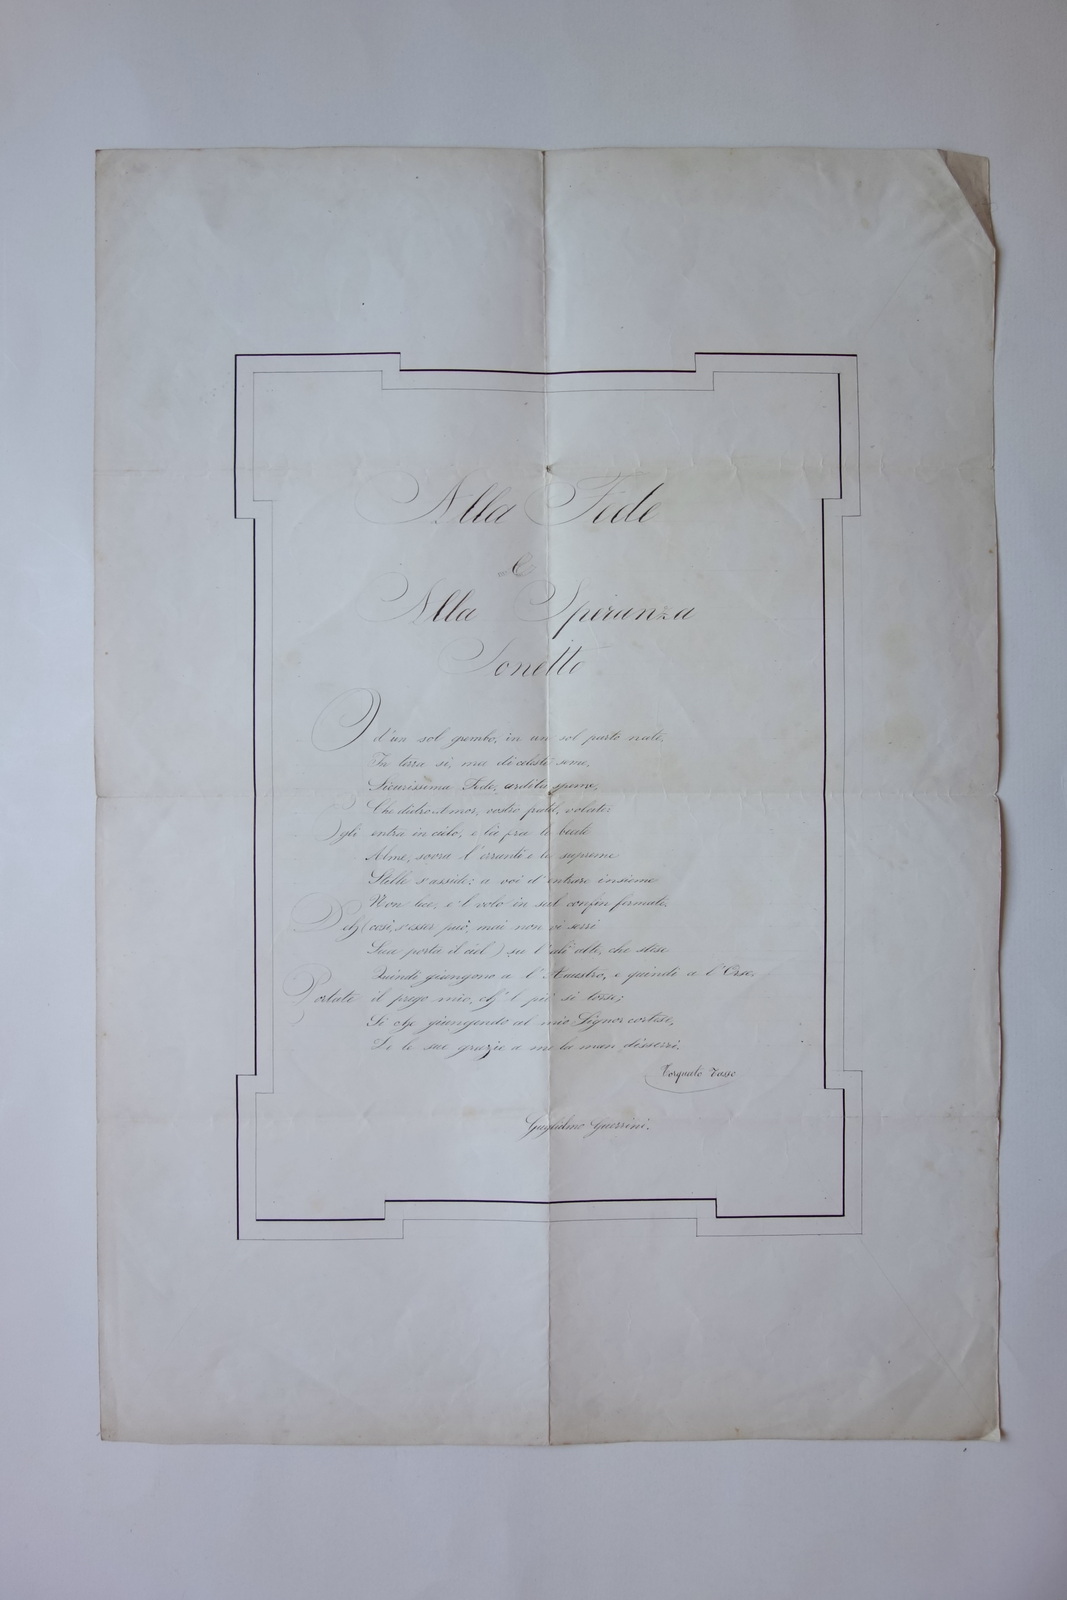 Alla Fede
e
Alla Speranza
Sonetto
O d'un sol grembo, in un sol parto nate,
In terra si, ma di celeste seme,
Sicurissima Fede, ardita speme,
Che dietro Amor, vostro padre, volate:
Egli entra in cielo, e là fra le beate
Alme, sovra l'erranti e le supreme
Stelle s'asside: a voi d'entrare insieme
Non lice, e'l volo in sul confin fermate.
Deh (così, s'esser può, mai non vi serri
Sua porta il ciel) su l'ali alte, che stese
Quindi giungono a l'Austro, e quindi a l'Orse,
Portate il prego mio, ch' si torse;
Si che giungendo al mio Signor cortese,
De le sue grazie a me la man disserri.
Torquato Tasso
Guglielmo Guerrini.